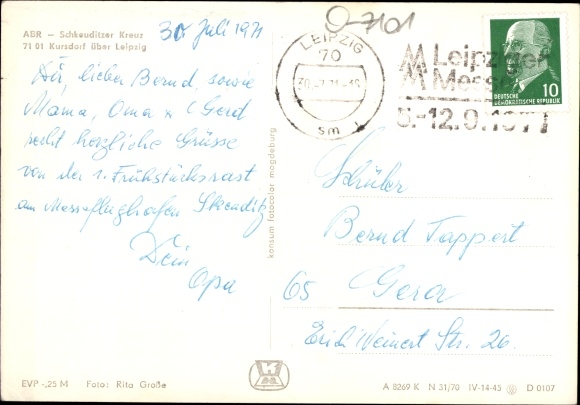 ABR – Schkeuditzer Kreuz
71 01 Kursdorf über Leipzig
30. Juli 1971
Dir, lieber Bernd, sowie
Mama, Oma & Gerd
recht herzliche Grüsse
von der 1. Frühstücksrast
am Messeflughafen Skeuditz
Dein
Opa
EVP -,25 M Foto: Rita Große
konsum fotocolor magdeburg
7101
LEIPZIG
70
sm
MM Leipziger
MM Messe
5.-12.9.1971
10
DEUTSCHE
DEMOKRATISCHE REPUBLIK
Schüler
Bernd Tappert
65 Gera
Erich Weinert Str. 26.
A 8269 K N 31/70 IV-14-45 D 0107